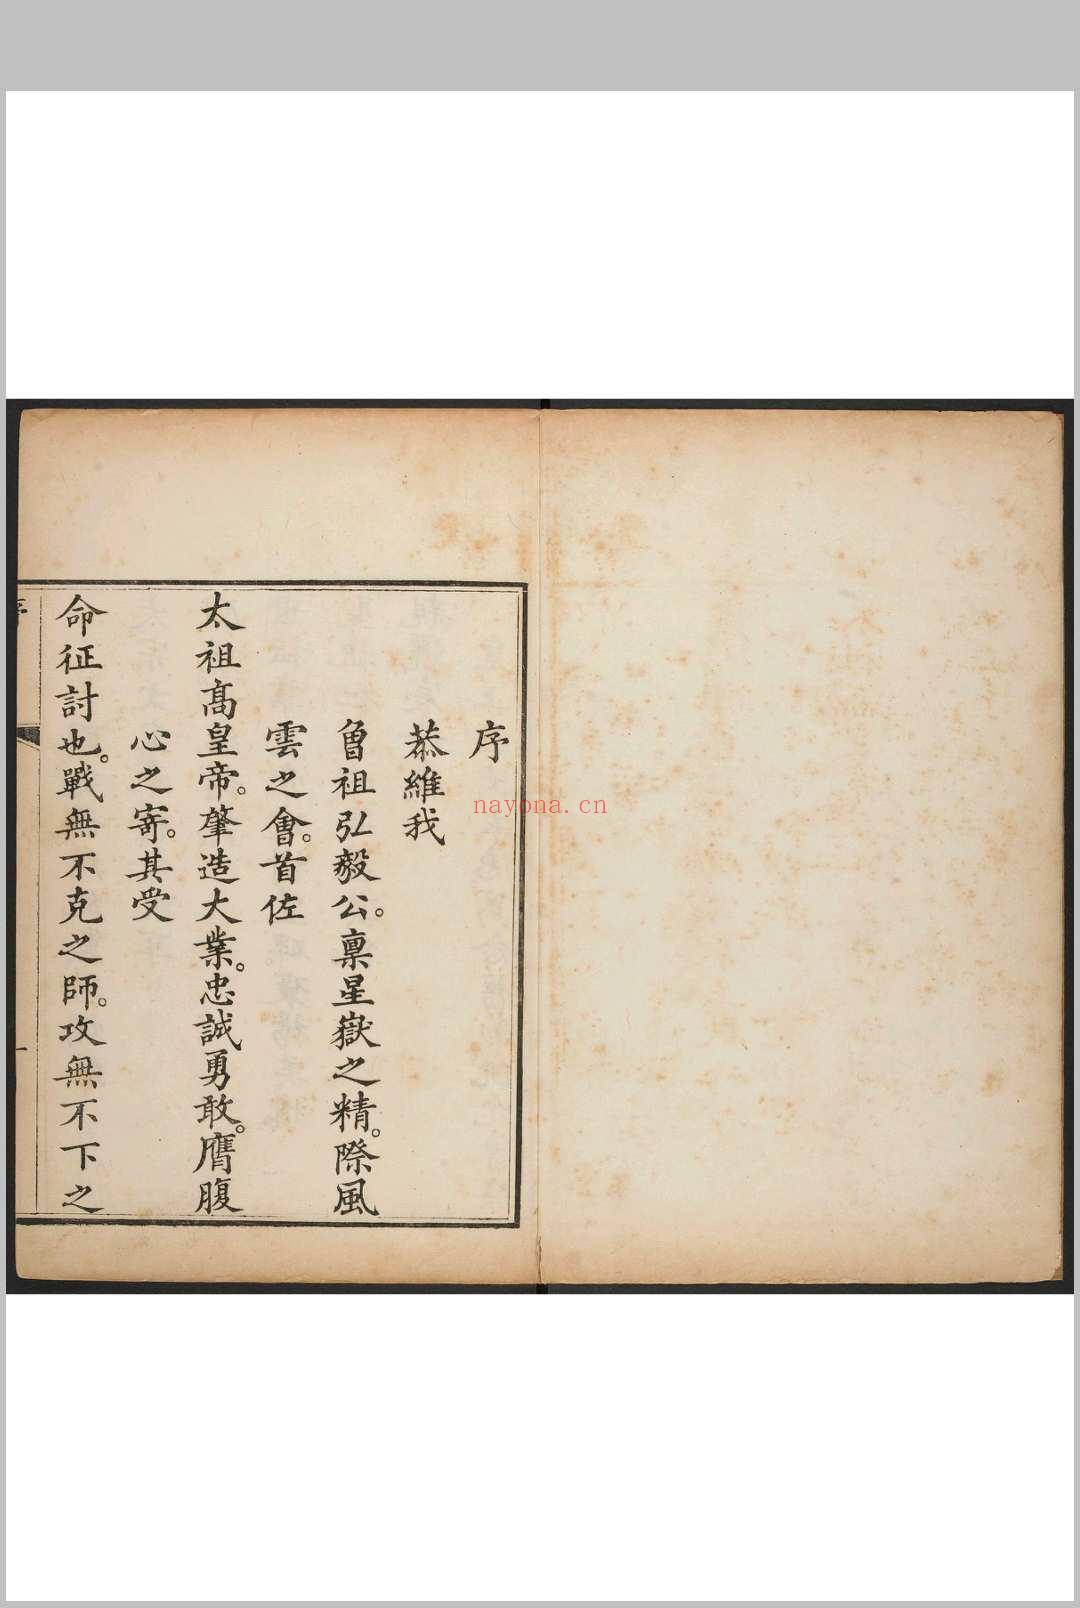 序
恭維我
曾祖弘毅公。稟星嶽之精。際風
雲之會。首佐
太祖高皇帝。肇造大業。忠誠勇敢。膺腹
心之寄。其受
命征討也。戰無不克之師。攻無不下之
序
一
nayona.cn